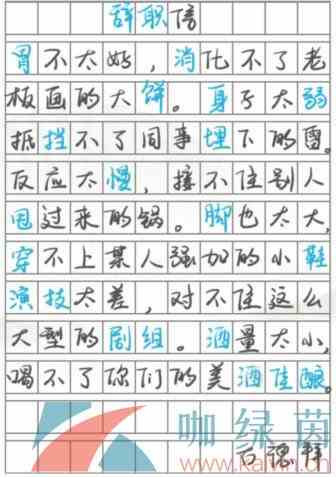 辞职信
胃不太好，消化不了老
板画的大饼。身子太弱
抵挡不了同事埋下的雷。
反应太慢，接不住别人
甩过来的锅。脚也太大，
穿不上某人强加的小鞋
演技太差，对不住这么
大型的剧组。酒量太小，
喝不了你们的美酒佳酿。
咖绿茵
www.kalvin.cn